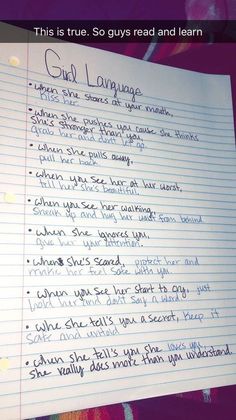 This is true. So guys read and learn
Girl Language
• when she stares at your mouth,
kiss her
• when she pushes you cause she thinks
she's stronger than you
grab her and dont let go
• when she pulls away,
pull her back
• when you see her at her worst,
tell her she's beautiful.
• when you see her walking,
sneak up and hug her waist from behind
• when she ignores you,
give her your attention.
• when she's scared, protect her and
make her feel safe with you.
• when you see her start to cry, just
hold her and dont say a word
• whe she tell's you a secret, keep it
safe and untold
• when she tell's you she loves you,
she really does more than you understand.